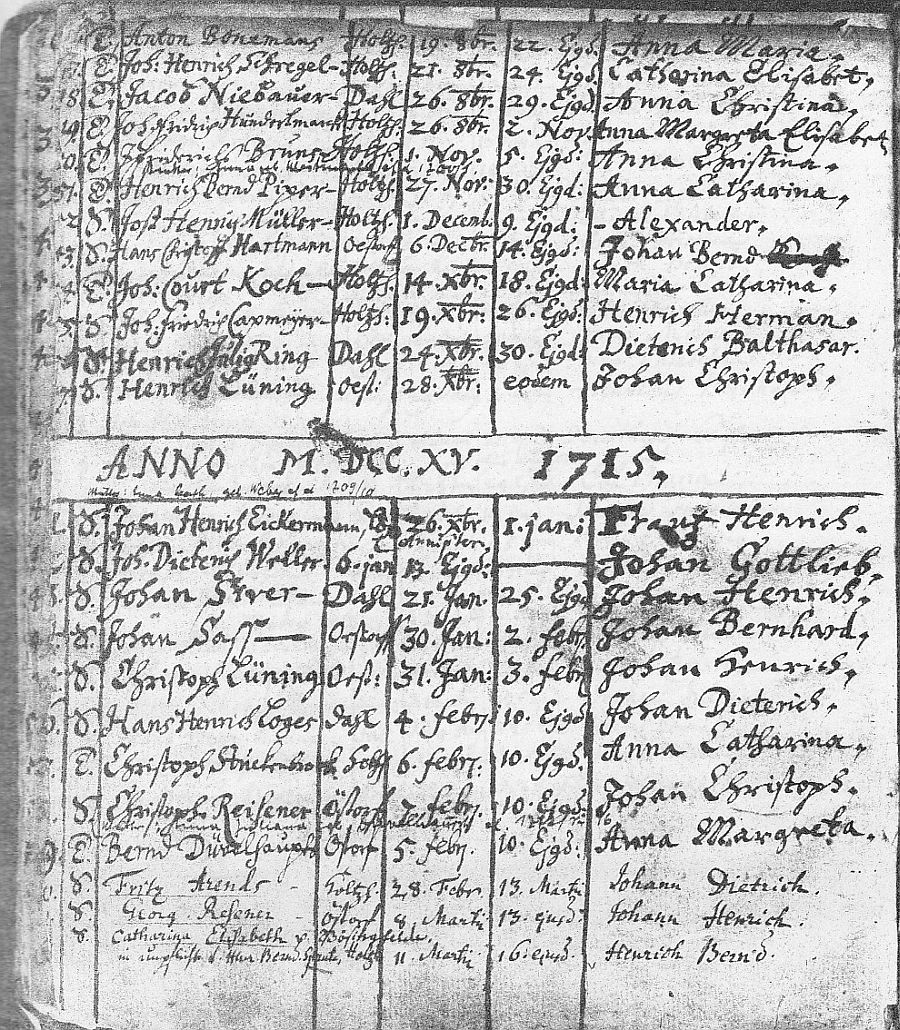 T. Anton Bonemans Holtzh. 19. 8br. 22. Ejgd. Anna Maria,
T. Joh: Henrich Schregel- Holtzh. 21. 8br. 24. Ejgd. Catharina Elisabet,
T. Jacob Niebauer- Dahl 26. 8br. 29. Ejgd. Anna Christina,
T. Hundertmarck Holtzh. 26. 8br. 2. Nov. Anna Margreta Elisabet
T. Bruns Holtzh. 1. Nov. 5. Ejgd: Anna Christina,
T. Henrich Bernd Piper- Holtzh: 27. Nov: 30. Ejgd: Anna Catharina,
S. Jost Henrich Müller- Holtzh: 1. Decemb: 9. Ejgd: - Alexander,
S. Hans Hartmann Oestorf 6. Decbr. 14. Ejgd: Johan Bernd
T. Joh: Court Koch- Holtzh. 14. Xbr: 18. Ejgd: Maria Catharina,
S. Joh: Friedrich Holtzh: 19. Xbr: 26. Ejgd: Henrich Herman,
S. Henrich Ring Dahl 24. Xbr: 30. Ejgd: Dieterich Balthasar.
S. Henrich Lüning Oest: 28. Xbr: eodem Johan Christoph,
ANNO M. DCC. XV. 1715.
1. S. Johan Henrich Eickermann, 26. Xbr. 1. jan: Frantz Henrich.
S. Joh: Dieterich Weller. 6. jan 13. Ejgd: Johan Gottlieb
S. Johan Dahl 21. Jan. 25. Ejgd Johan Henrich,
S. Johan Sass- Oestorf 30. Jan: 2. febr. Johan Bernhard,
S. Christoph Lüning Oest: 31. Jan: 3. febr Johan Henrich,
S. Hans Henrich Loges dahl 4. febr: 10. Ejgd: Johan Dieterich,
T. Christoph Stuckenbrock Holtzh 6. febr: 10. Ejgd: Anna Catharina,
S. Christoph Reisener Östorf 7. febr. 10. Ejgd: Johan Christoph.
T. Bernd Düvelhaupt Östorf 5. febr. 10. Ejgd: Anna Margreta.
S. Fritz Arends - Holtzh. 28. Febr. 13. Martii Johann Dietrich.
S. Georg Resener Östorf 8. Martii 13. ejusd: Johann Henrich.
S. Catharina Elisabeth p. Bösingfelde.
Bernd Holtzh 11. Martii 16. ejusd. Henrich Bernd.